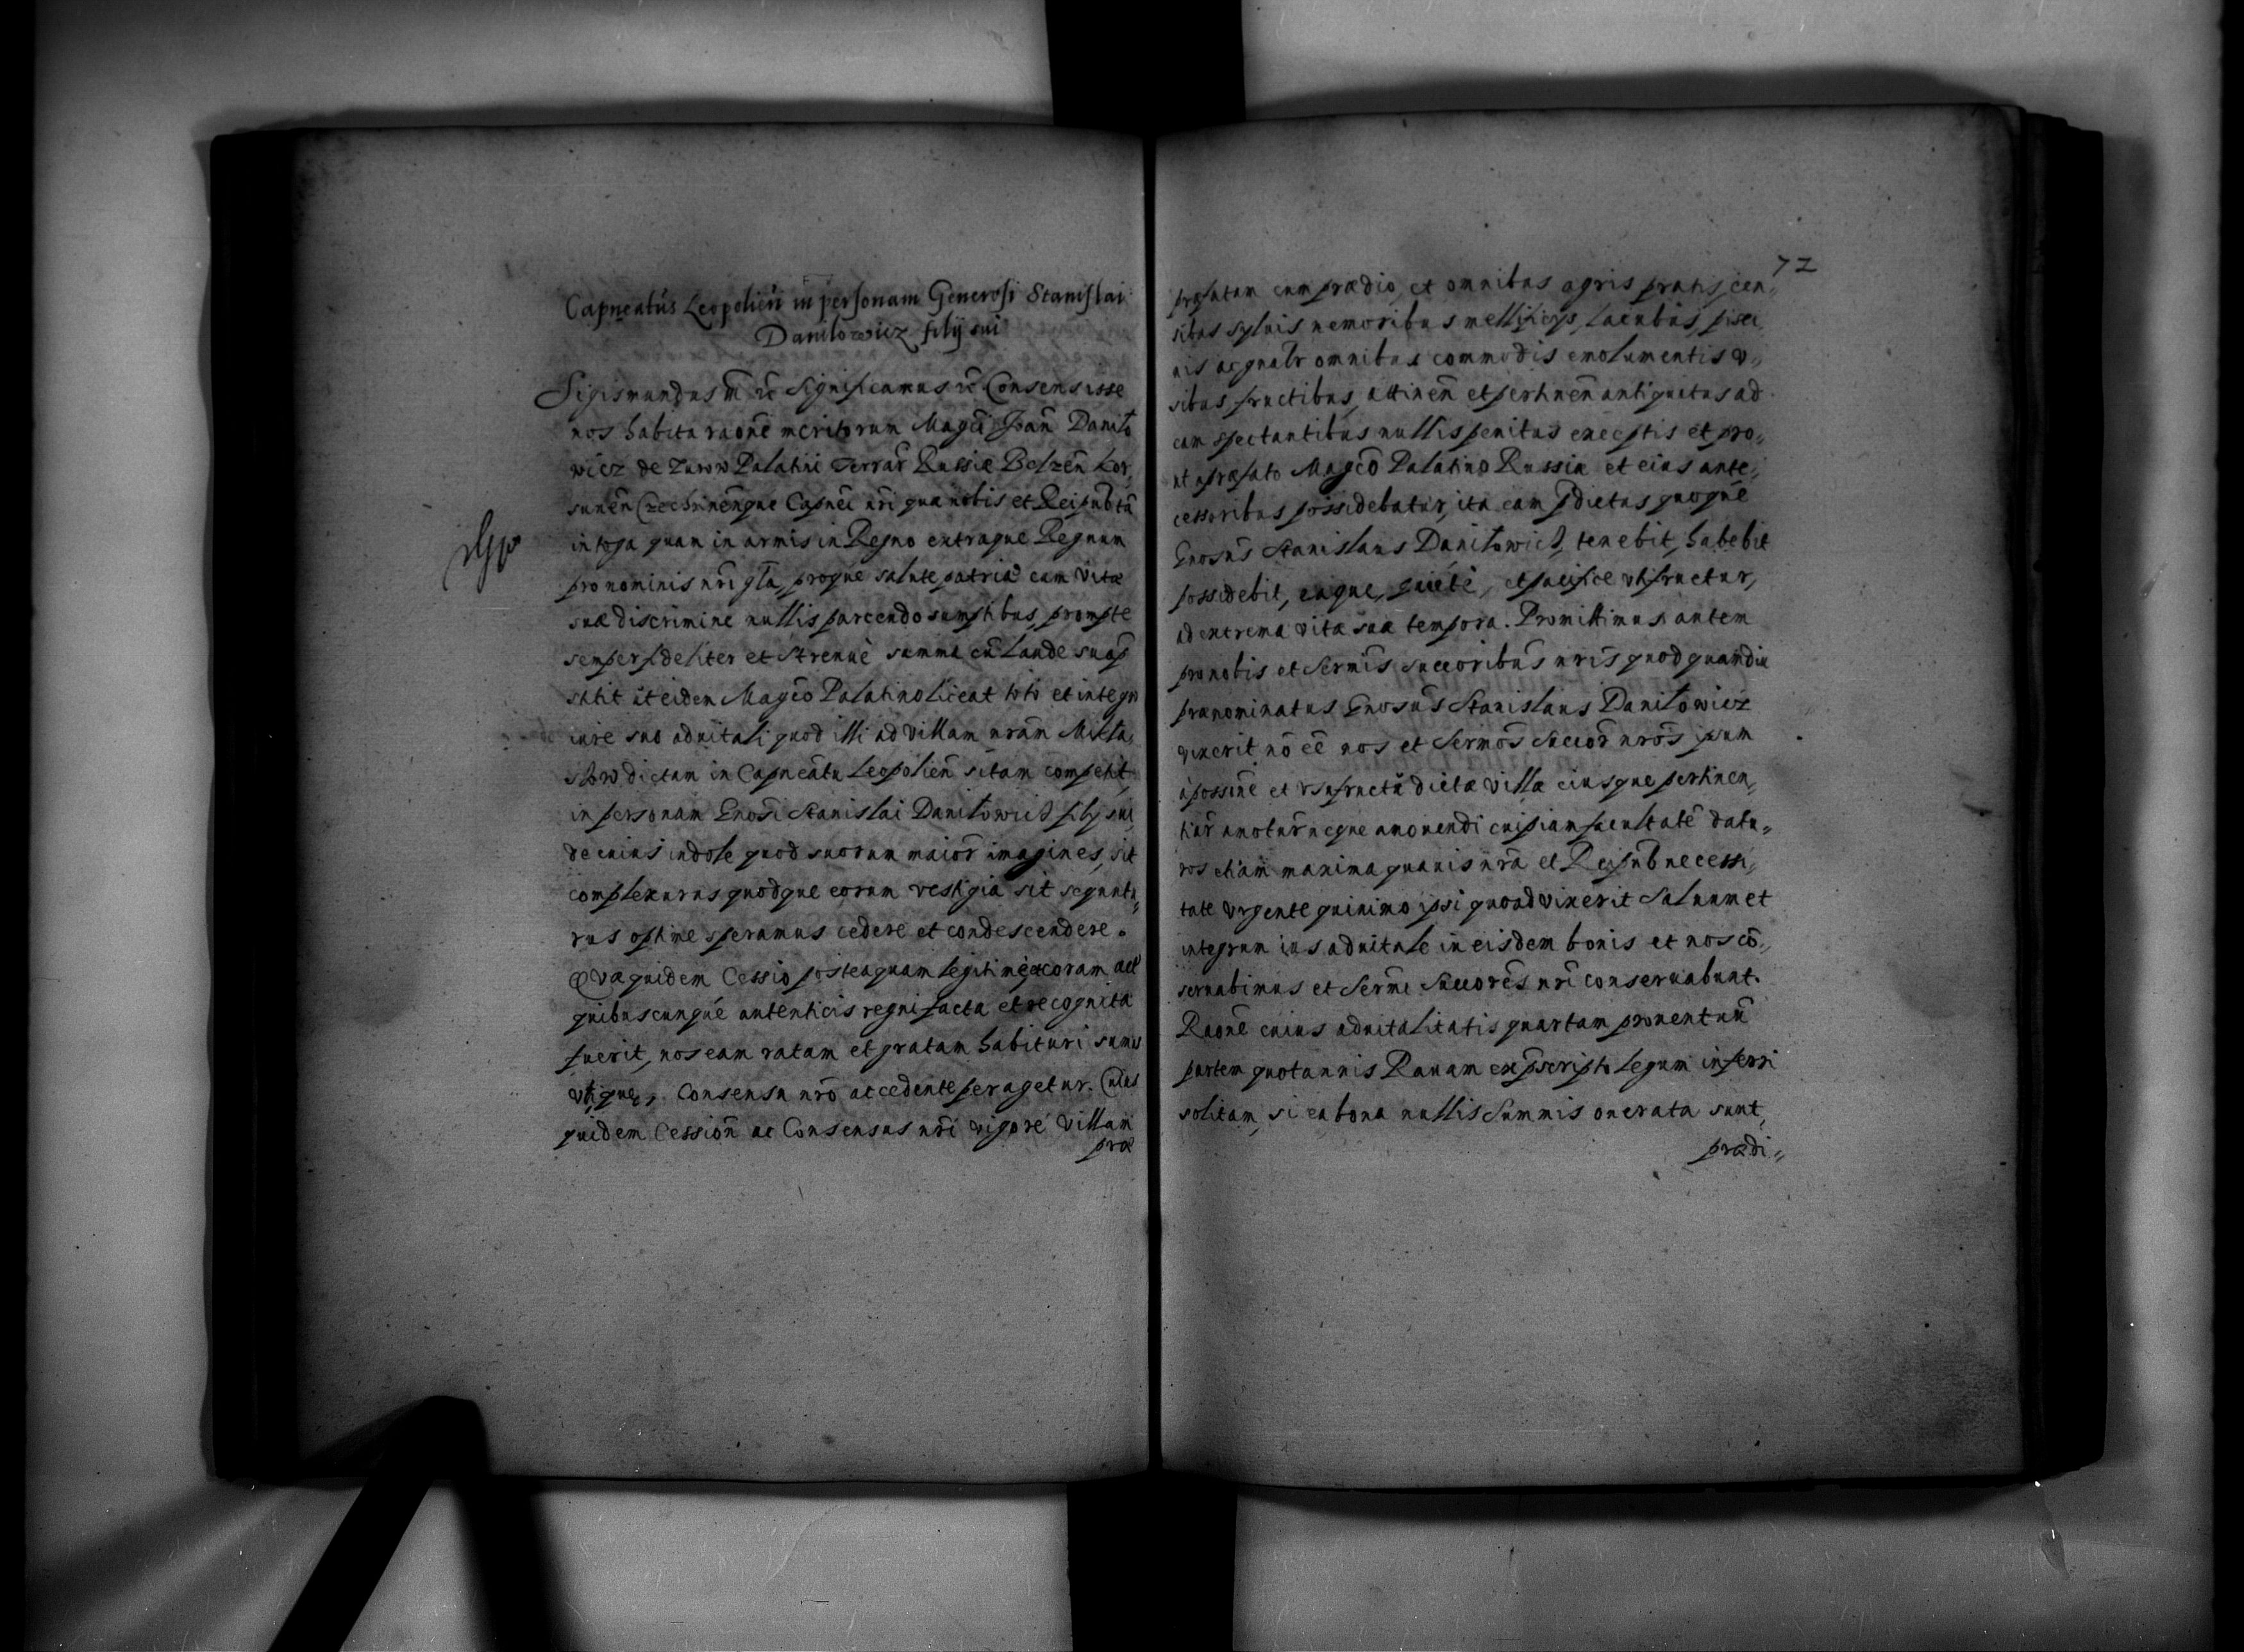 Capneatûs Leopolien̄ in personam Generosi Stanislai
Danilowicz filij sui
Sigismundus m̄ rc̄ Significamus rc̄ Consensisse
nos habita raōne meritorum Magc̄i Joan̄ Daniło
wicz de Zurow Palatini Terrar̄ Russiæ Belzen̄ Kor,
sunen̄ Czechrinen̄que Capnei nr̄i quæ nobis et Reipub̄tā
in toga quam in armis in Regno extraque Regnum
pro nominis nr̄i gl̄a, proque salute patriæ cum vitæ
suæ discrimine nullis parcendo sumptibus, prompte
semper fideliter et Strenuè summa cū laude suap̄
stitit ut eidem Magc̄o Palatino liceat toto et integro
iure suo aduitali quod illi ad villam nrām Mikła,
show dictam in Capneātu Leopolien̄ sitam competit
in personam Gnosi Stanislai Daniłowicz filij sui,
de cuius indole quod suorum maior̄ imagines, sit
complexurus quodque eorum vestigia sit sequutu,,
rus optime speramus cedere et condescendere.
Quæ quidem Cessio posteaquam legitimè coram act
quibuscunque autenticis regni facta et recognita
fuerit, nos eam ratam et gratam habituri sumus
vtique, Consensu nrō accedente peragetur. Cuius
quidem Cession̄ ac Consensus nr̄i vigore villam
præ
72
præfatam cum prædio, et omnibus agris pratis, cen,,
sibus syluis nemoribus mellificijs, lacubus, pisci,
nis ac gnalr omnibus commodis emolumentis v,,
sibus fructibus, attinen̄ et pertinen̄ antiquitus ad
eam spectantibus nullis penitus exceptis et pro,,
ut a præfato Magc̄o Palatino Russiæ et eius ante,,
cessoribus possidebatur, ita eam p̄dictus quoque
Gnosus Stanislaus Daniłowicz tenebit, habebit
possidebit, eaque, quietè, et pacifice vtifructur,
ad extrema vitæ suæ tempora. Promittimus autem
pro nobis et Sermis succoribus nrīs quod quamdiu
prænominatus Gnosus Stanislaus Daniłowicz
vixerit nō eē nos et Sermos Succor̄ nrōs ipsum
à possn̄e et vsufructū dictæ villæ eiusque pertinen,,
tiar̄ amotur̄ neque amouendi cuipiam facultatē datu,,
ros etiam maxima quauis nrā et Reipub̄ necessi,,
tate vrgente quinimo ipsi quoad vixerit Saluum et
integrum ius aduitale in eisdem bonis et nos cō,,
seruabimus et Sermi Succores nrī conseruabunt.
Raōne cuius aduitalitatis quartam prouentuū
partem quotannis Rauam ex p̄scripto legum inferri
solitam, si ea bona nullis Summis onerata sunt,
prædi,,